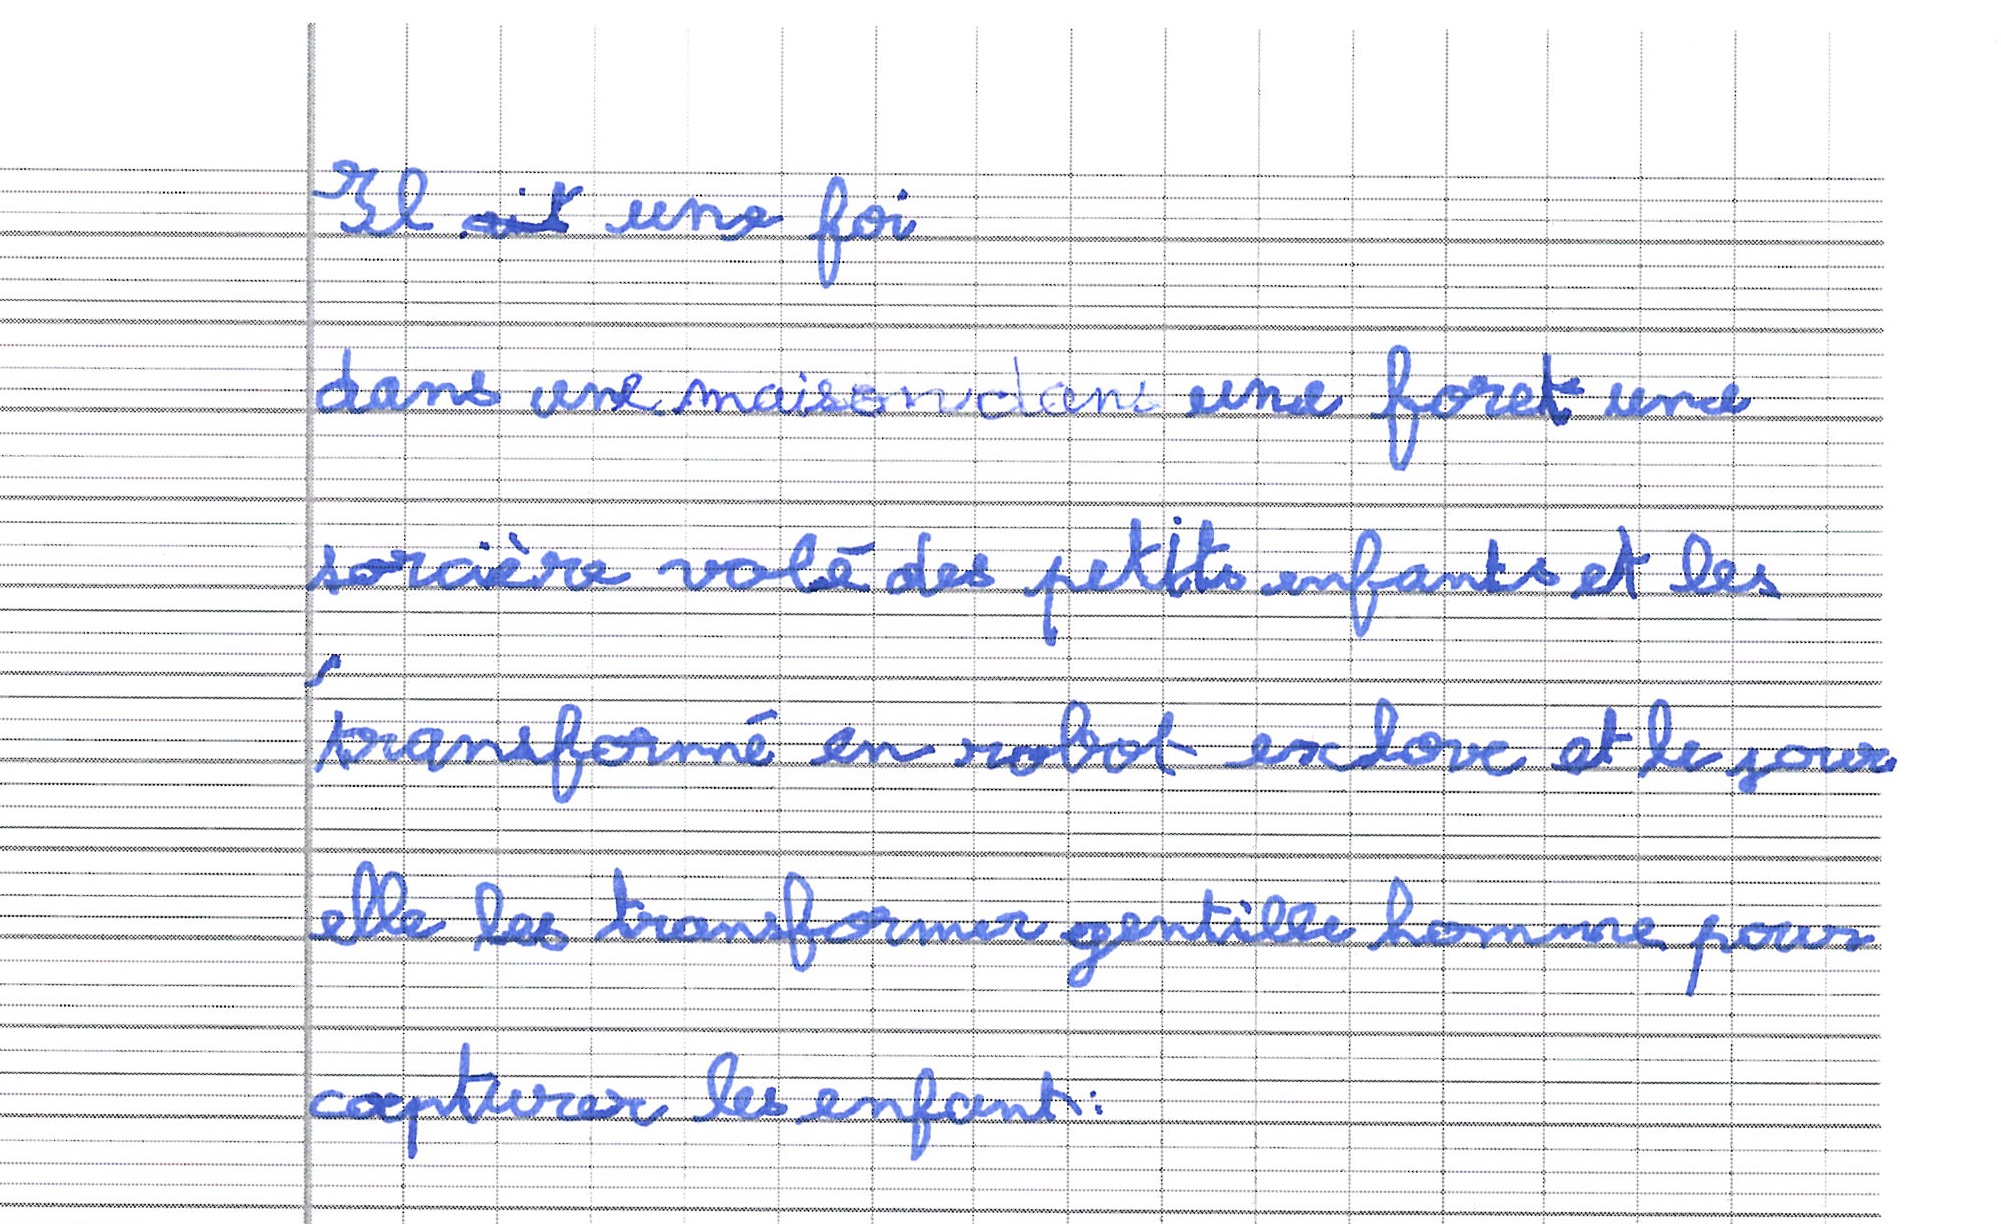 Il ait une foi
dans une maison dans une foret une
sorcière volé des petits enfants et les
transformé en robot exclave et le jour
elle les transformer gentille homme pour
capturer les enfant.